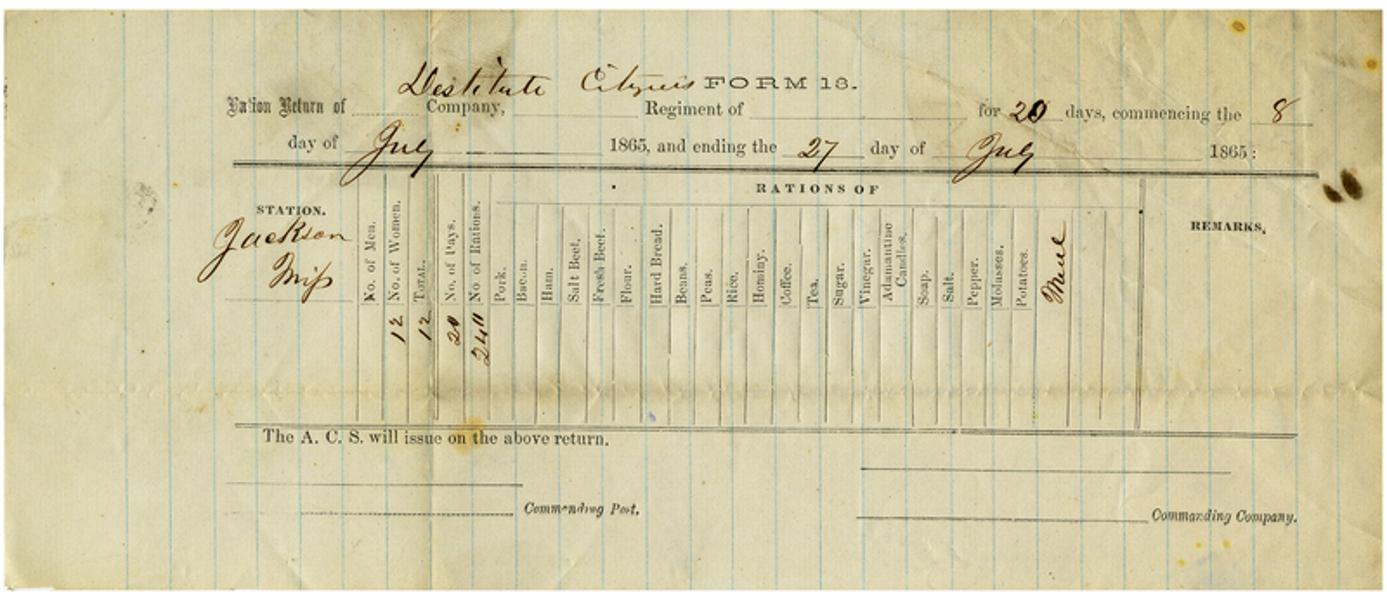 Destitute Citizens FORM 13.
Ration Return of Company, Regiment of for 20 days, commencing the 8
day of July 1865, and ending the 27 day of July 1865:
RATIONS OF
STATION. No. of Men. No. of Women. TOTAL. No. of Days. No. of Rations. Pork. Bacon. Ham. Salt Beef. Fresh Beef. Flour. Hard Bread. Beans. Peas. Rice. Hominy. Coffee. Tea. Sugar. Vinegar. Adamantine Candles. Soap. Salt. Pepper. Molasses. Potatoes. Meal REMARKS.
Jackson
Miss
12 12 20 240
The A. C. S. will issue on the above return.
Commanding Post.
Commanding Company.